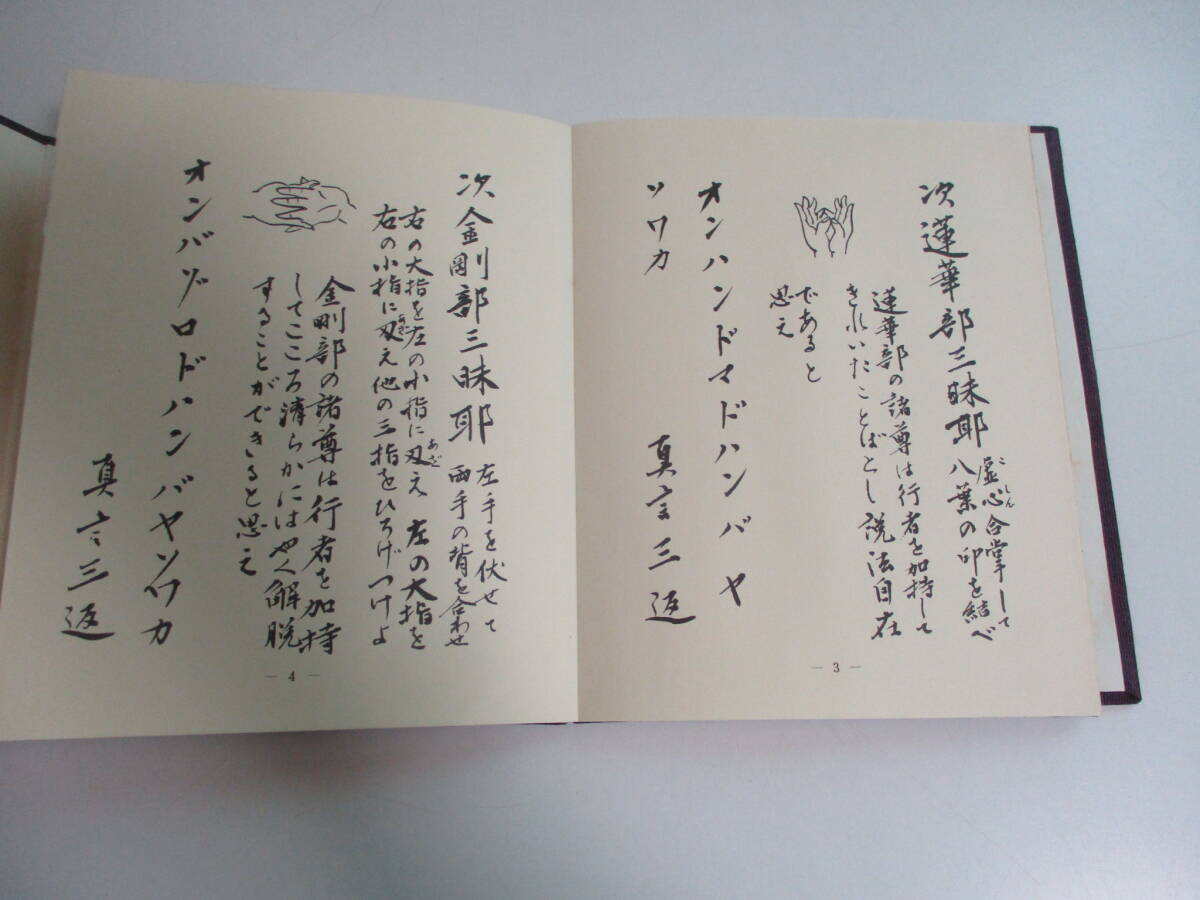 次蓮華部三昧耶 虚心合掌して
八葉の印を結べ
こしん
蓮華部の諸尊は行者を加持して
きれいたことばとし説法自在
であると
思え
オンハンドマドハンバヤ
ソワカ
真言三返
— 3 —
次金剛部三昧耶 左手を伏せて
両手の背を合わせ
右の大指を左の小指に叉え 左の大指を
あざ
右の小指に叉え他の三指をひろげつけよ
あざ
金剛部の諸尊は行者を加持
してこころ清らかにはやく解脱
することができると思え
オンバゾロドハンバヤソワカ
真言三返
— 4 —